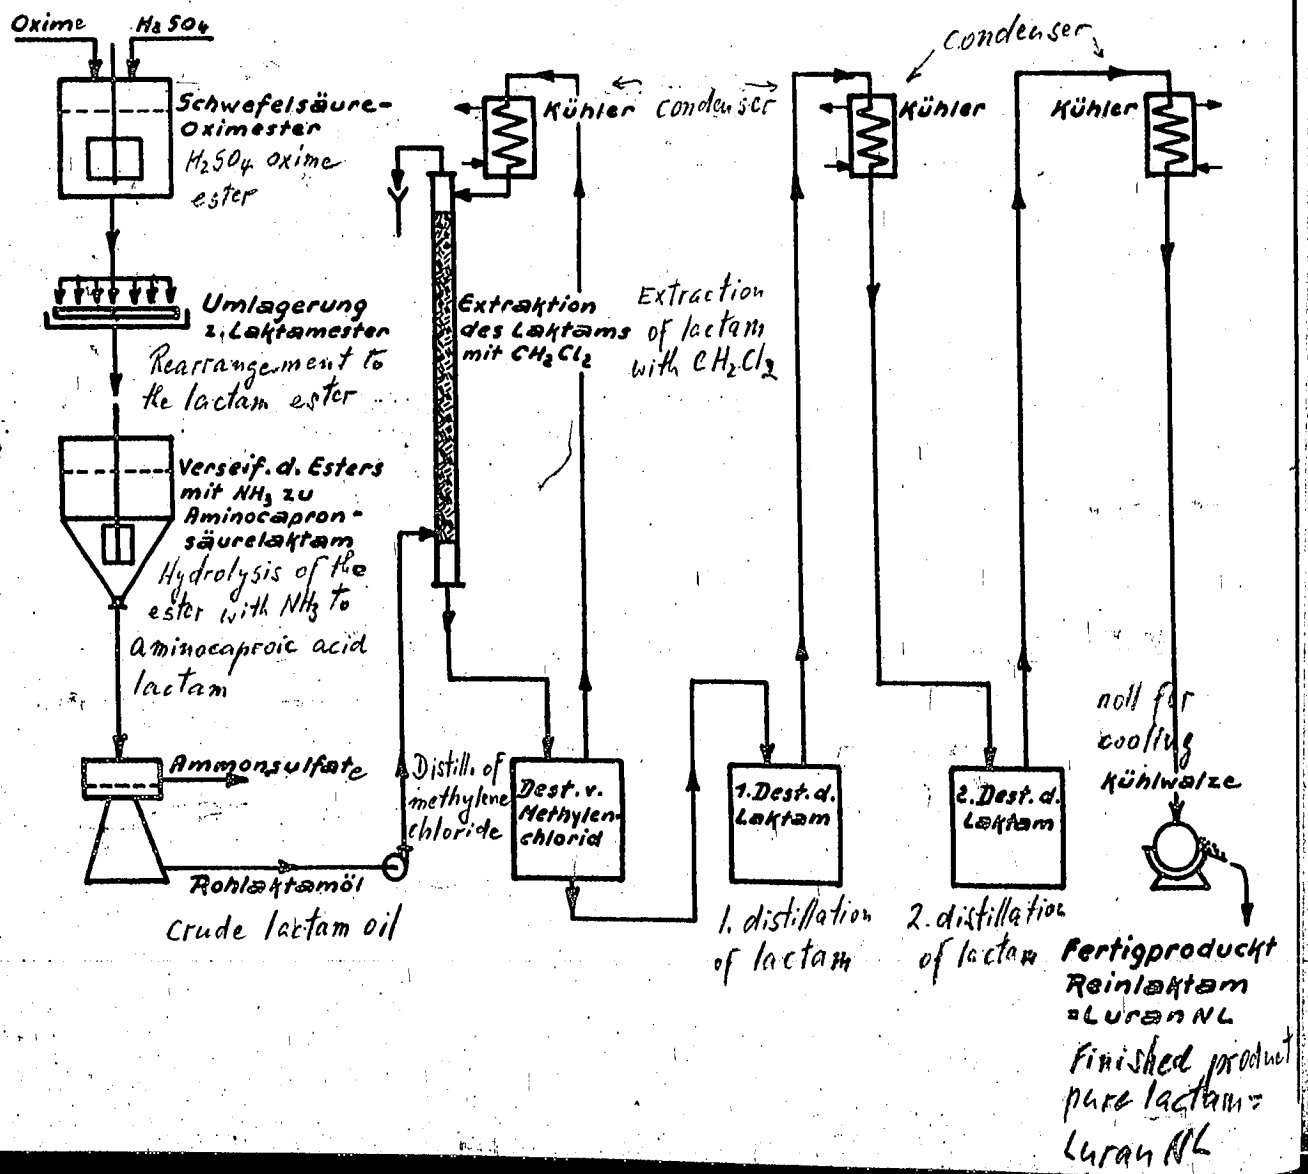 Oxime
H2SO4
Schwefelsäure-
Oximester
H2SO4 oxime
ester
Umlagerung
z. Laktamester
Rearrangement to
the lactam ester
Verseif. d. Esters
mit NH3 zu
Aminocapron-
säurelaktam
Hydrolysis of the
ester with NH3 to
Aminocaproic acid
lactam
Ammonsulfate
Rohlaktamöl
crude lactam oil
Kühler
condenser
Extraktion
des Laktams
mit CH2Cl2
Extraction
of lactam
with CH2Cl2
Distill. of
methylene
chloride
Dest. v.
Methylen-
chlorid
condenser
Kühler
Kühler
1. Dest. d.
Laktam
1. distillation
of lactam
2. Dest. d.
Laktam
2. distillation
of lactam
noll for
cooling
Kühlwalze
Fertigproduckt
Reinlaktam
=Luran NL
Finished product
pure lactam=
Luran NL